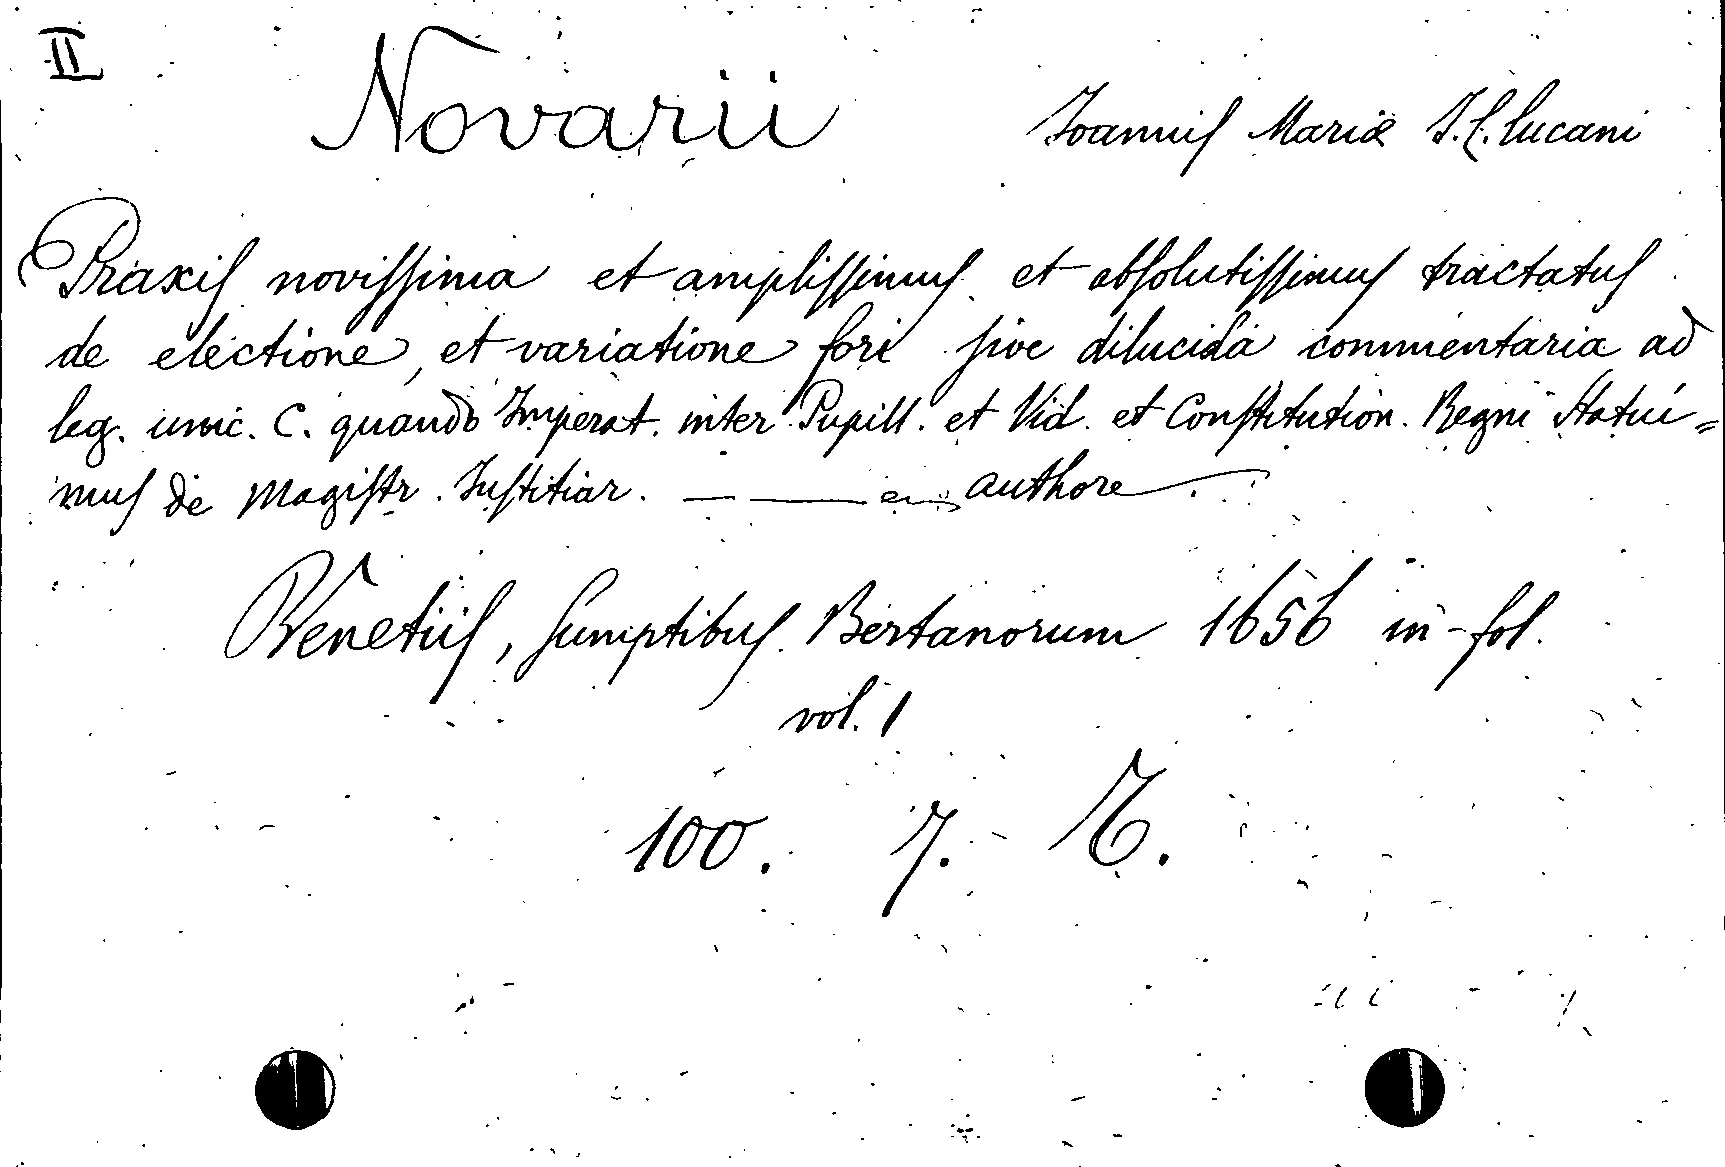 II
Novarii Joannis Mariæ J.C. Lucani
Praxis novissima et amplissimus et absolutissimus tractatus
de electione, et variatione fori sive dilucida commentaria ad
leg. unic. C. quando Imperat. inter Pupill. et Vid. et Constitution. Regni Statui=
mus de Magistr. Justitiar. — — authore.
Venetiis, sumptibus Bertanorum 1656 in-fol.
vol. 1
100. 7.